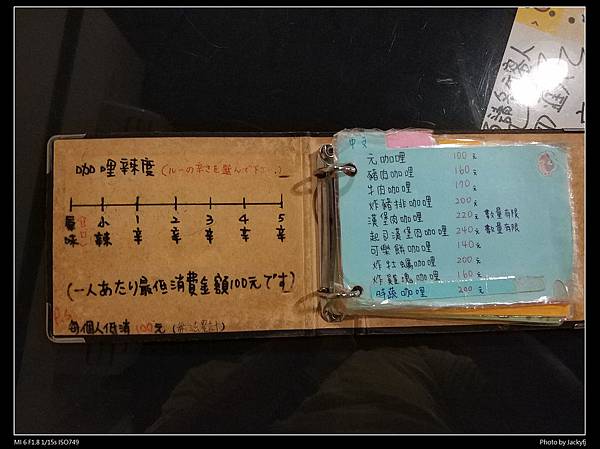 咖哩辣度 (ルーの辛さを選んで下さい)
小 1 2 3 4 5
味 辣 辛 辛 辛 辛 辛
(一人あたり最低消費金額100元です)
每個人低消100元
中文
元咖哩 100元
豬肉咖哩 160元
牛肉咖哩 170元
炸豬排咖哩 200元
漢堡肉咖哩 220元 數量有限
起司漢堡肉咖哩 240元 數量有限
可樂餅咖哩 140元
炸牡蠣咖哩 200元
炸雞塊咖哩 160元
時蔬咖哩 200元
MI 6 F1.8 1/15s ISO749
Photo by Jackyfj